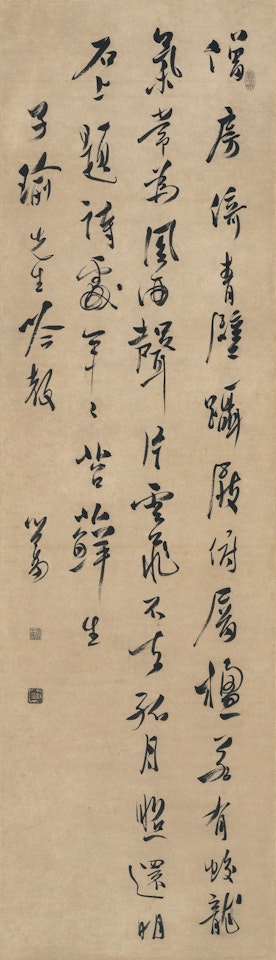 僧房倚青壁躡屐俯層楹若有蛟龍
氣常為風雨聲片雲飛不去孤月照還明
石上題詩處年〻苔蘚生
子瑜先生吟教
心畬